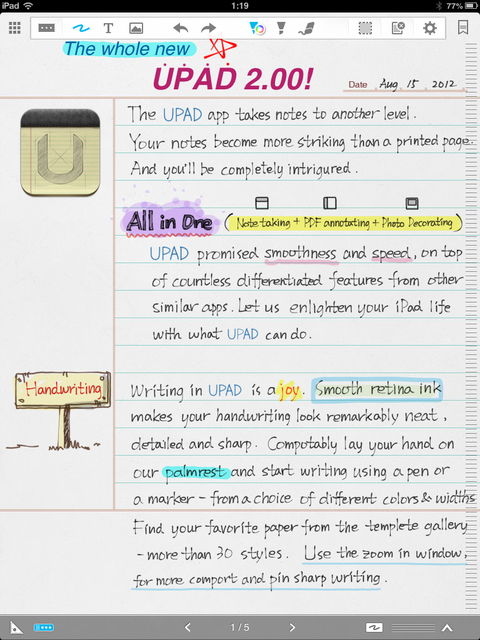 iPad
1:19
77%
T
The whole new
UPAD 2.00!
Date Aug. 15 2012
The UPAD app takes notes to another level.
Your notes become more striking than a printed page.
And you'll be completely intrigured.
U
All in One (Note taking + PDF annotating + Photo Decorating)
UPAD promised smoothness and speed, on top
of countless differentiated features from other
similar apps. Let us enlighten your iPad life
with what UPAD can do.
Handwriting
Writing in UPAD is a joy. Smooth retina ink
makes your handwriting look remarkably neat,
detailed and sharp. Compotably lay your hand on
our palmrest and start writing using a pen or
a marker - from a choice of different colors & widths
Find your favorite paper from the templete gallery
- more than 30 styles. Use the zoom in window,
for more comport and pin sharp writing.
1 / 5